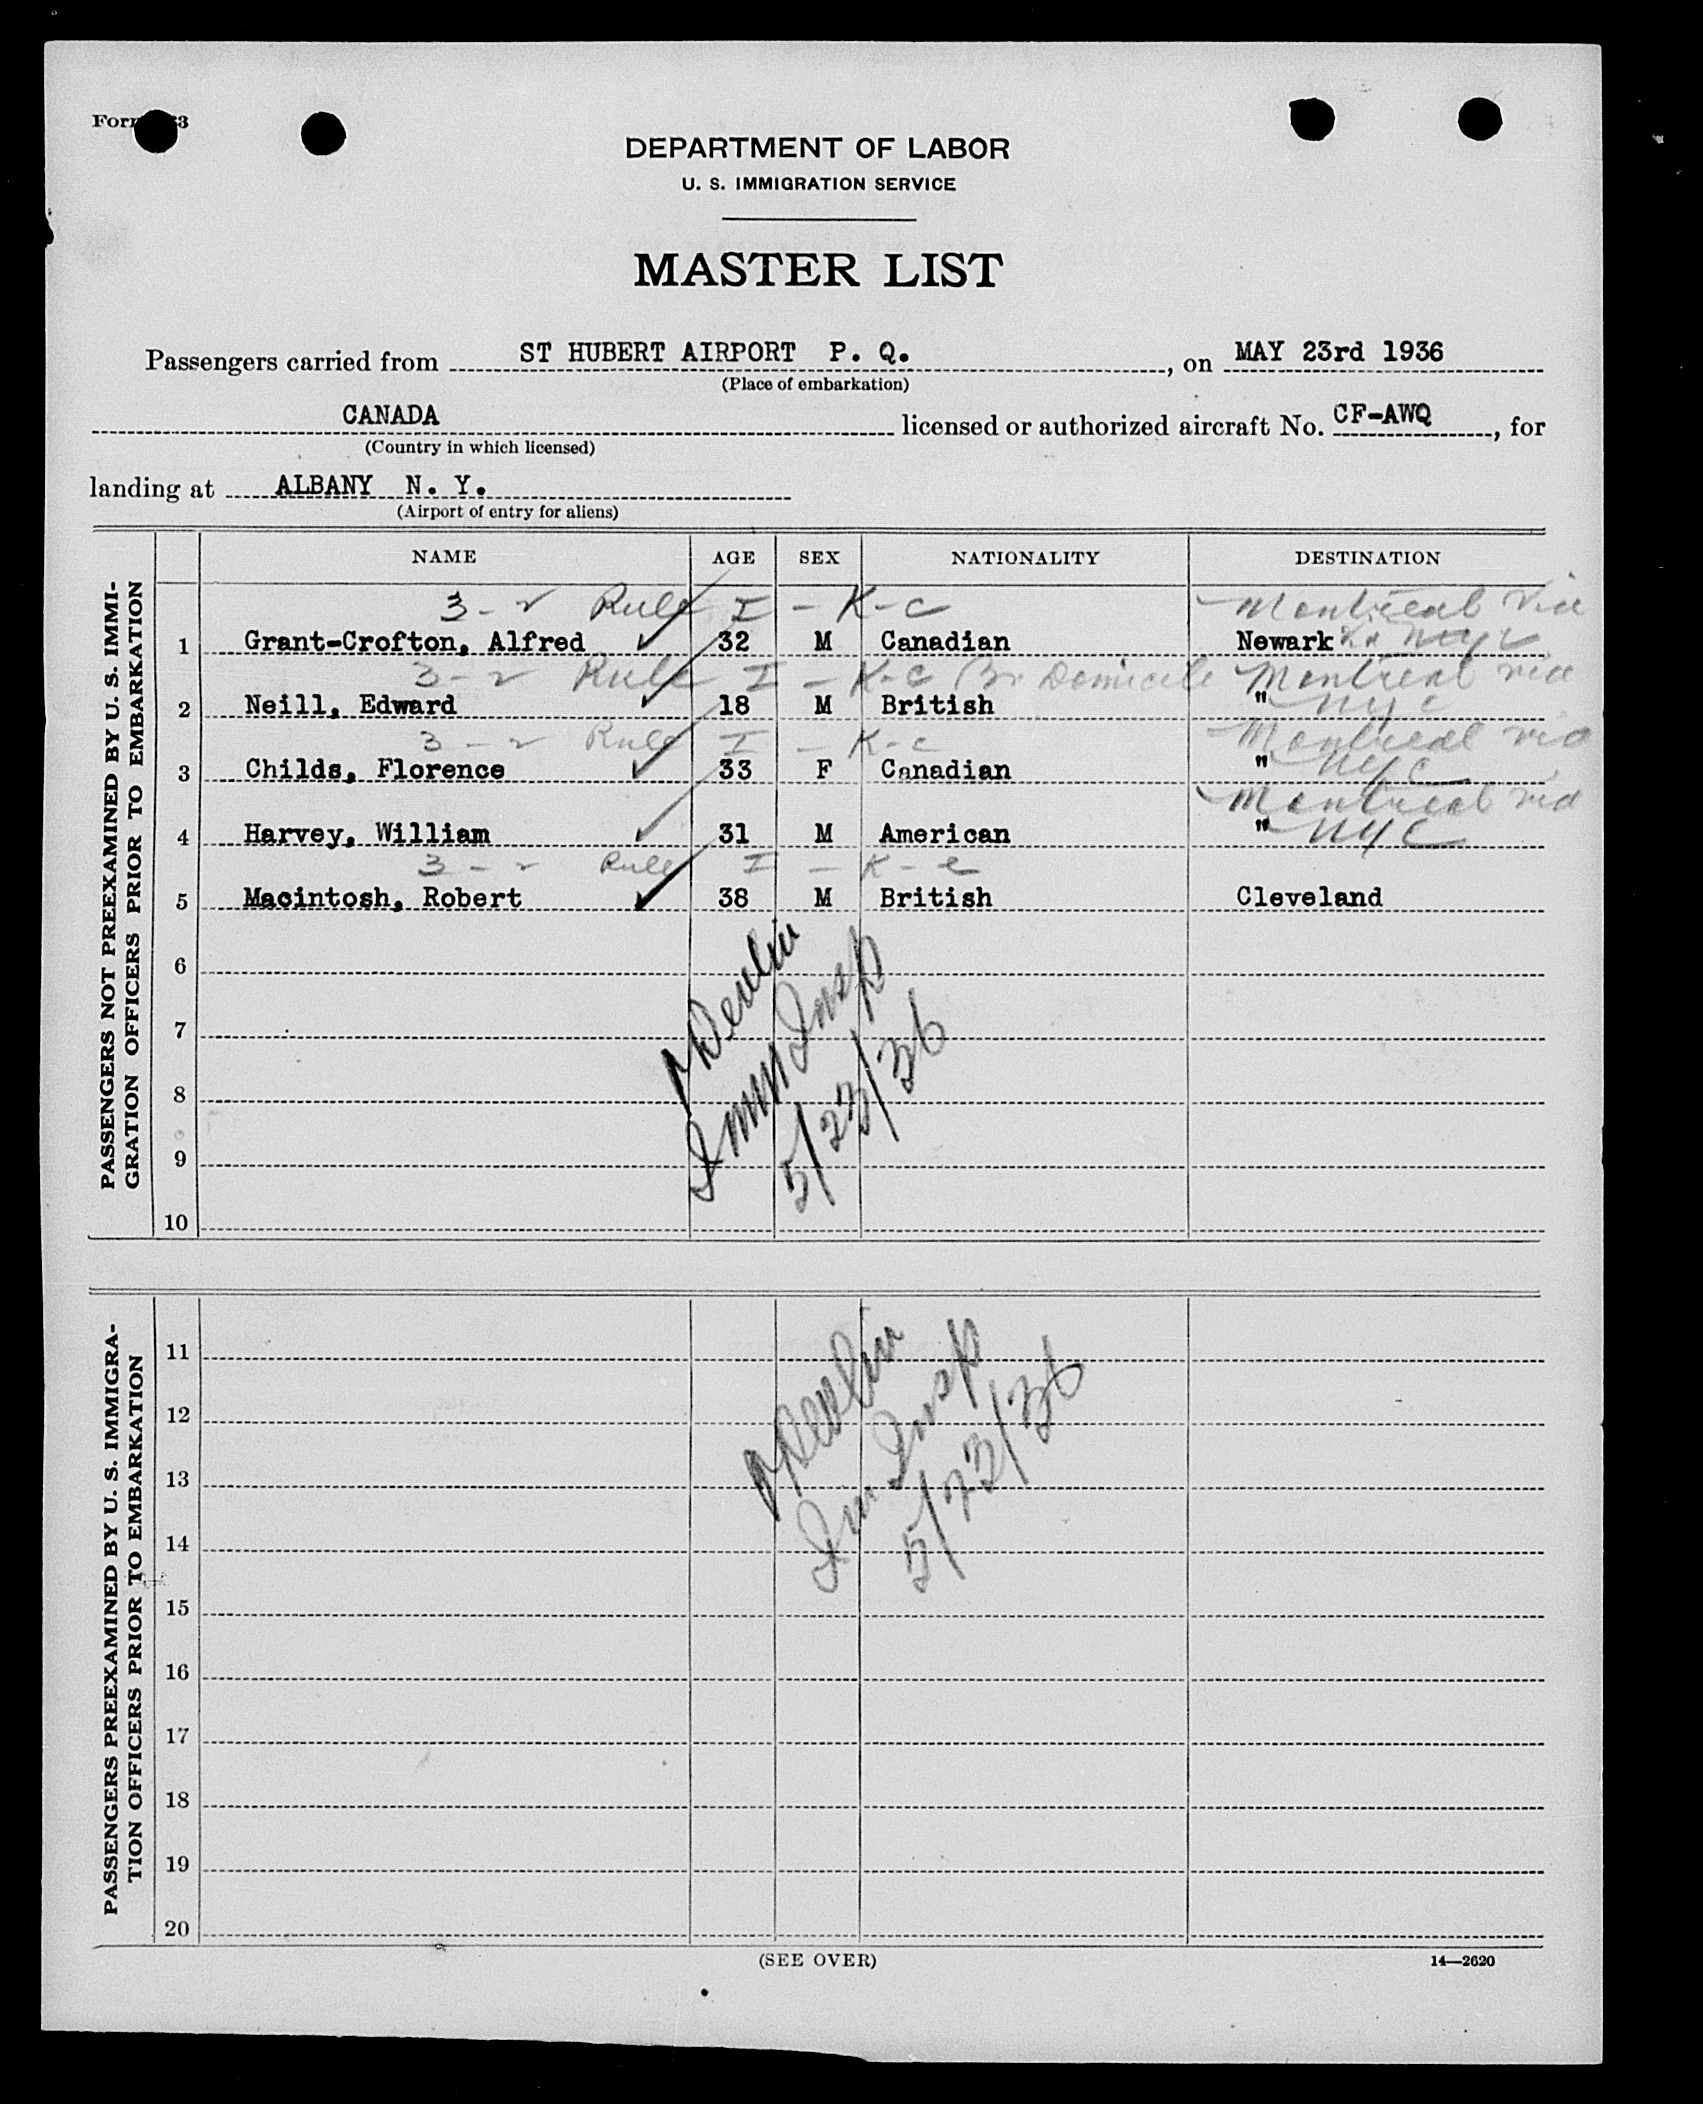 Form 63
DEPARTMENT OF LABOR
U. S. IMMIGRATION SERVICE
MASTER LIST
Passengers carried from ST HUBERT AIRPORT P. Q., on MAY 23rd 1936
(Place of embarkation)
CANADA licensed or authorized aircraft No. CF-AWQ, for
(Country in which licensed)
landing at ALBANY N. Y.
(Airport of entry for aliens)
PASSENGERS NOT PREEXAMINED BY U. S. IMMI-
GRATION OFFICERS PRIOR TO EMBARKATION
NAME AGE SEX NATIONALITY DESTINATION
3 - 2 Rule I - K-C Montreal via
1 Grant-Crofton, Alfred 32 M Canadian Newark NYC
3 - 2 Rule I - K-C Br Domicile Montreal via
2 Neill, Edward 18 M British " NYC
3 - 2 Rule I - K-C Montreal via
3 Childs, Florence 33 F Canadian " NYC
Montreal via
4 Harvey, William 31 M American " NYC
3 - 2 Rule I - K - C
5 Macintosh, Robert 38 M British Cleveland
6
7
8
9
10
Devlin
Imm Insp
5/23/36
PASSENGERS PREEXAMINED BY U. S. IMMIGRA-
TION OFFICERS PRIOR TO EMBARKATION
11
12
13
14
15
16
17
18
19
20
Devlin
Im Insp
5/23/36
(SEE OVER) 14—2620